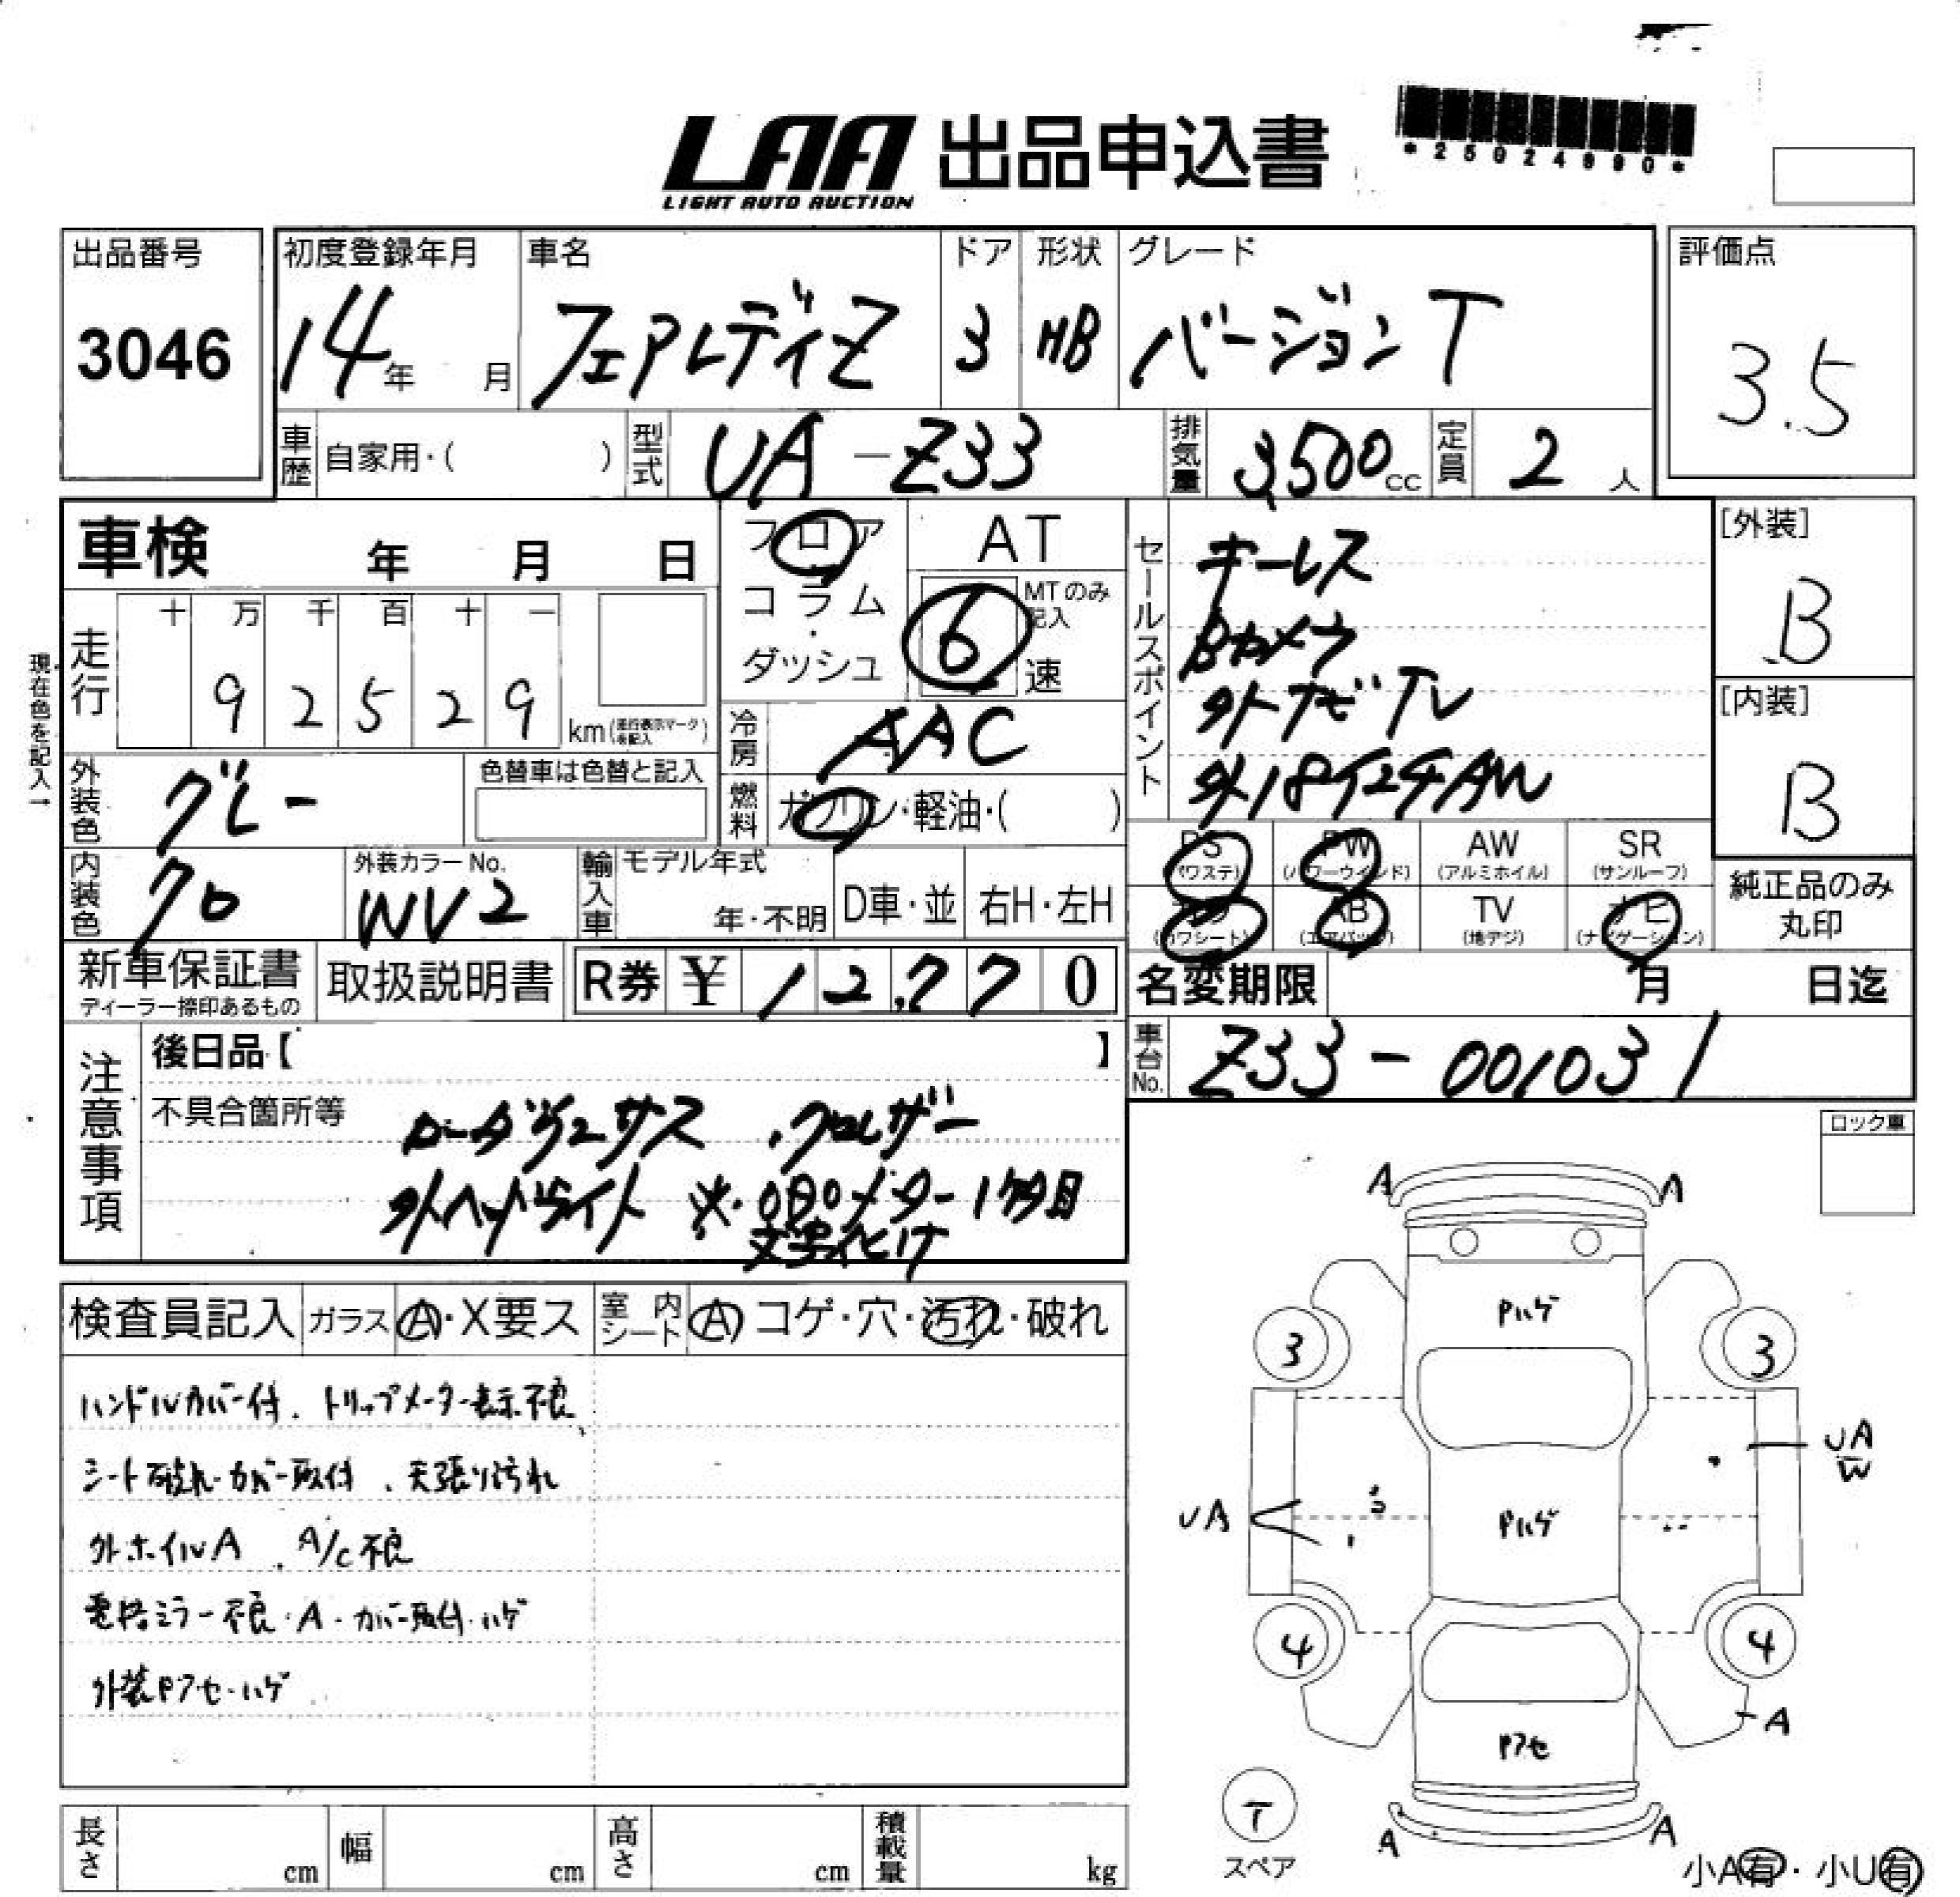 LAA 出品申込書
LIGHT AUTO AUCTION
*25024990*
出品番号
3046
初度登録年月
14年 月
車名
フェアレディZ
ドア
3
形状
HB
グレード
バージョンT
評価点
3.5
車歴 自家用・( )
型式 UA-Z33
排気量 3,500cc
定員 2人
車検 年 月 日
フロア
コラム
・
ダッシュ
AT
6 MTのみ記入
速
セールスポイント
キーレス
Bカメラ
外ナビTV
外18インチAW
[外装]
B
[内装]
B
現在色を記入→
走行
十 万 千 百 十 一
9 2 5 2 9
km(走行表示マークを記入)
冷房 AAC
燃料 ガソリン・軽油・( )
外装色 グレー
色替車は色替と記入
内装色 クロ
外装カラーNo.
WV2
輸入車
モデル年式
年・不明
D車・並
右H・左H
PS
(パワステ)
PW
(パワーウインド)
AW
(アルミホイル)
SR
(サンルーフ)
カワ
(カワシート)
AB
(エアバッグ)
TV
(地デジ)
ナビ
(ナビゲーション)
純正品のみ
丸印
新車保証書
ディーラー捺印あるもの
取扱説明書
R券 ¥ 12,770
名変期限 月 日迄
車台No. Z33-001031
注意事項
後日品【 】
不具合箇所等
ローダウンサス ・クロレザー
外ヘッドライト ※・ODOメーター1ケタ目
文字化け
ロック車
検査員記入
ガラス A・X要ス
室内シート A コゲ・穴・汚れ・破れ
ハンドルカバー付、トリップメーター表示不良、
シート破れ・カバー取付、天張り汚れ
外ホイルA、A/C不良
電格ミラー不良・A・カバー取付・ハゲ
外装Pアセ・ハゲ
A A
Pハゲ
3 3
UA
W
UA
Pハゲ
4 4
A
Pアセ
T
スペア
A A
小A有・小U有
長さ cm
幅 cm
高さ cm
積載量 kg